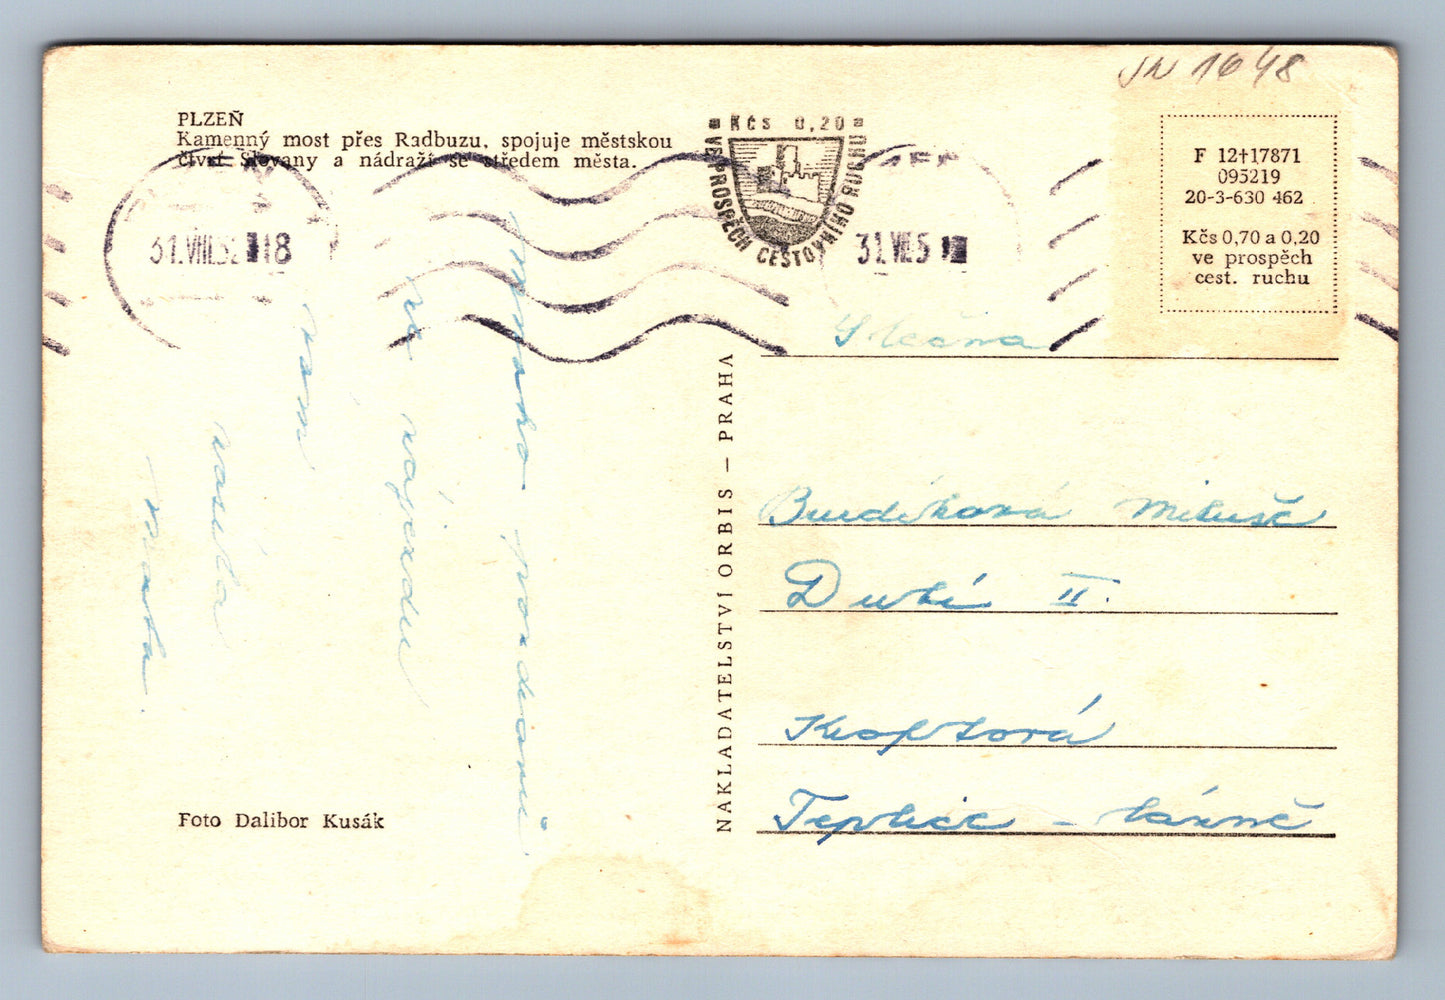 JN 1648
PLZEŇ
Kamenný most přes Radbuzu, spojuje městskou
čtvrť Slovany a nádraží se středem města.
Kčs 0,20
VE PROSPĚCH CESTOVNÍHO RUCHU
31.VIII.52 18
31.VIII.5
F 12†17871
095219
20-3-630 462
Kčs 0,70 a 0,20
ve prospěch
cest. ruchu
Mnoho pozdravů
ze zájezdu
Vám
zasílá
Slečna
Burdíková Miluše
Dubí II.
Teplice - lázně
NAKLADATELSTVÍ ORBIS — PRAHA
Foto Dalibor Kusák